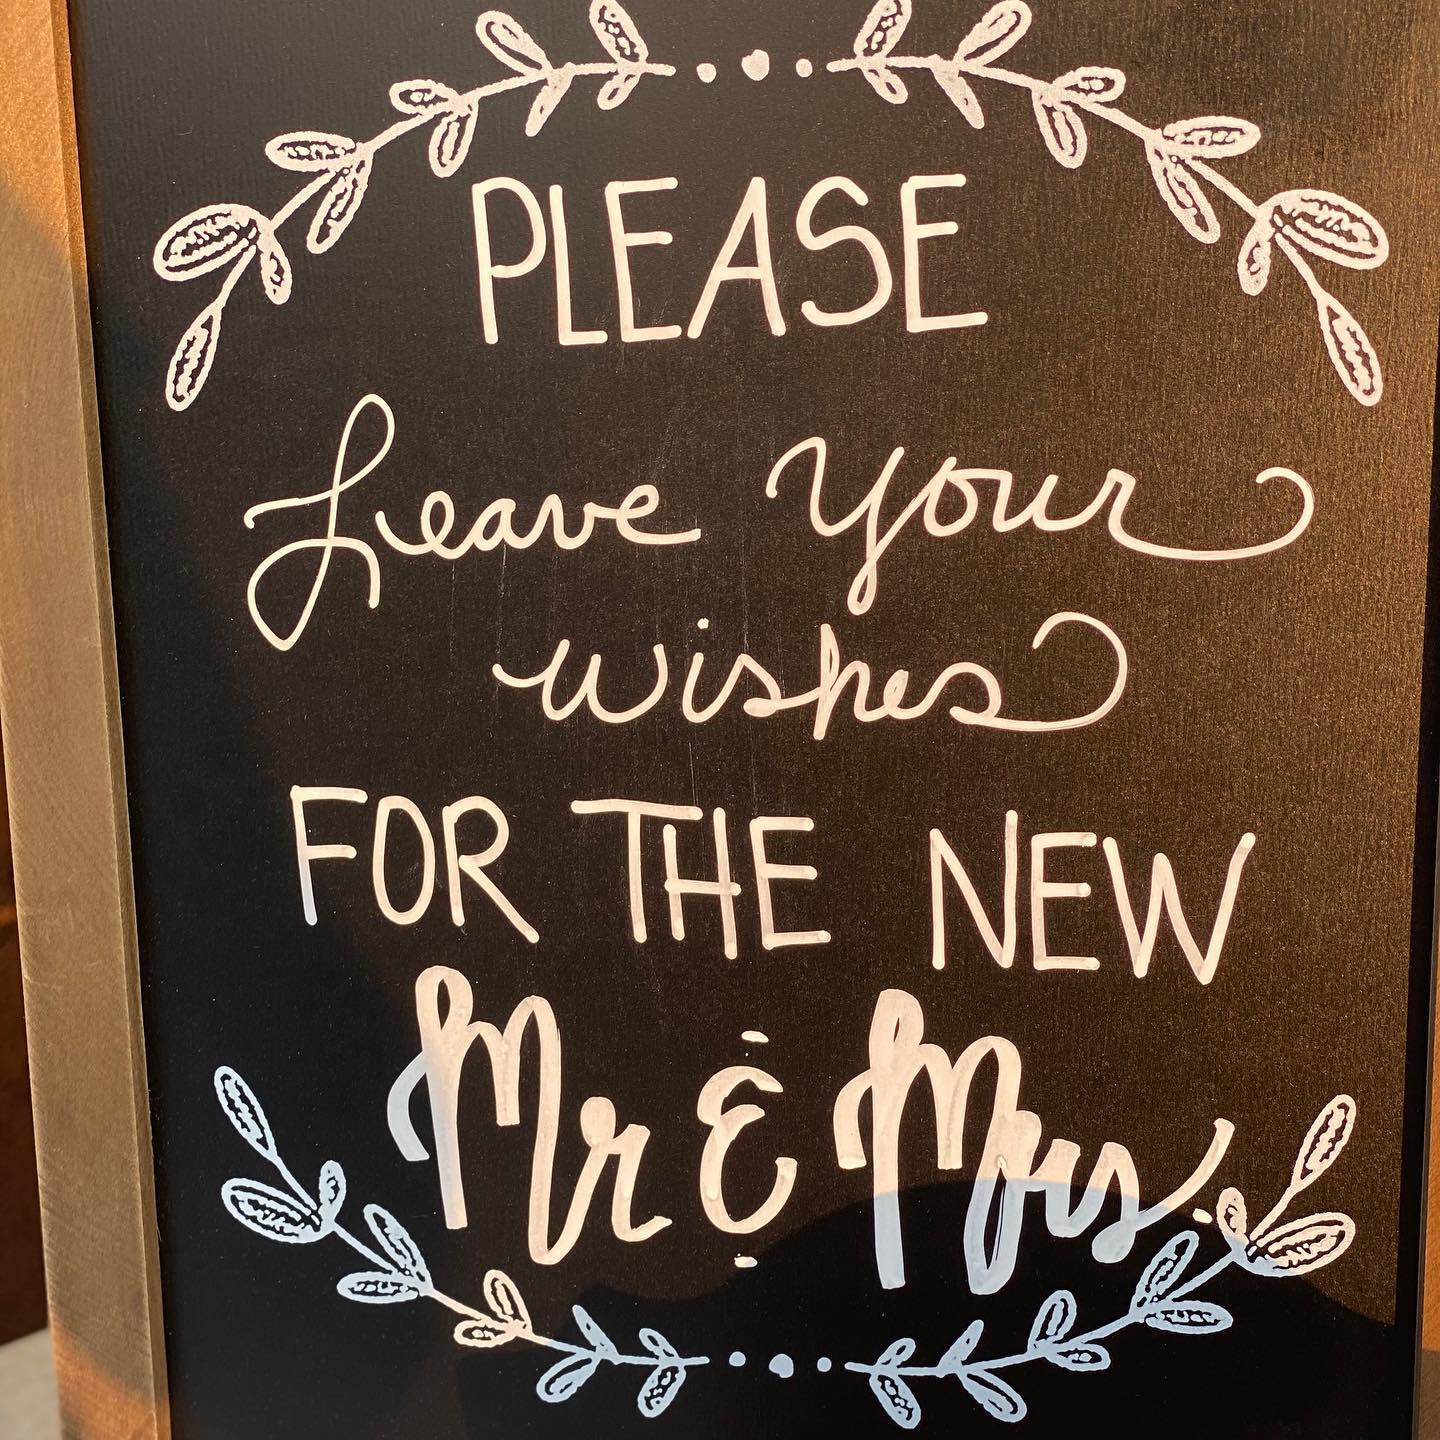 PLEASE
Leave your
wishes
FOR THE NEW
Mr & Mrs.